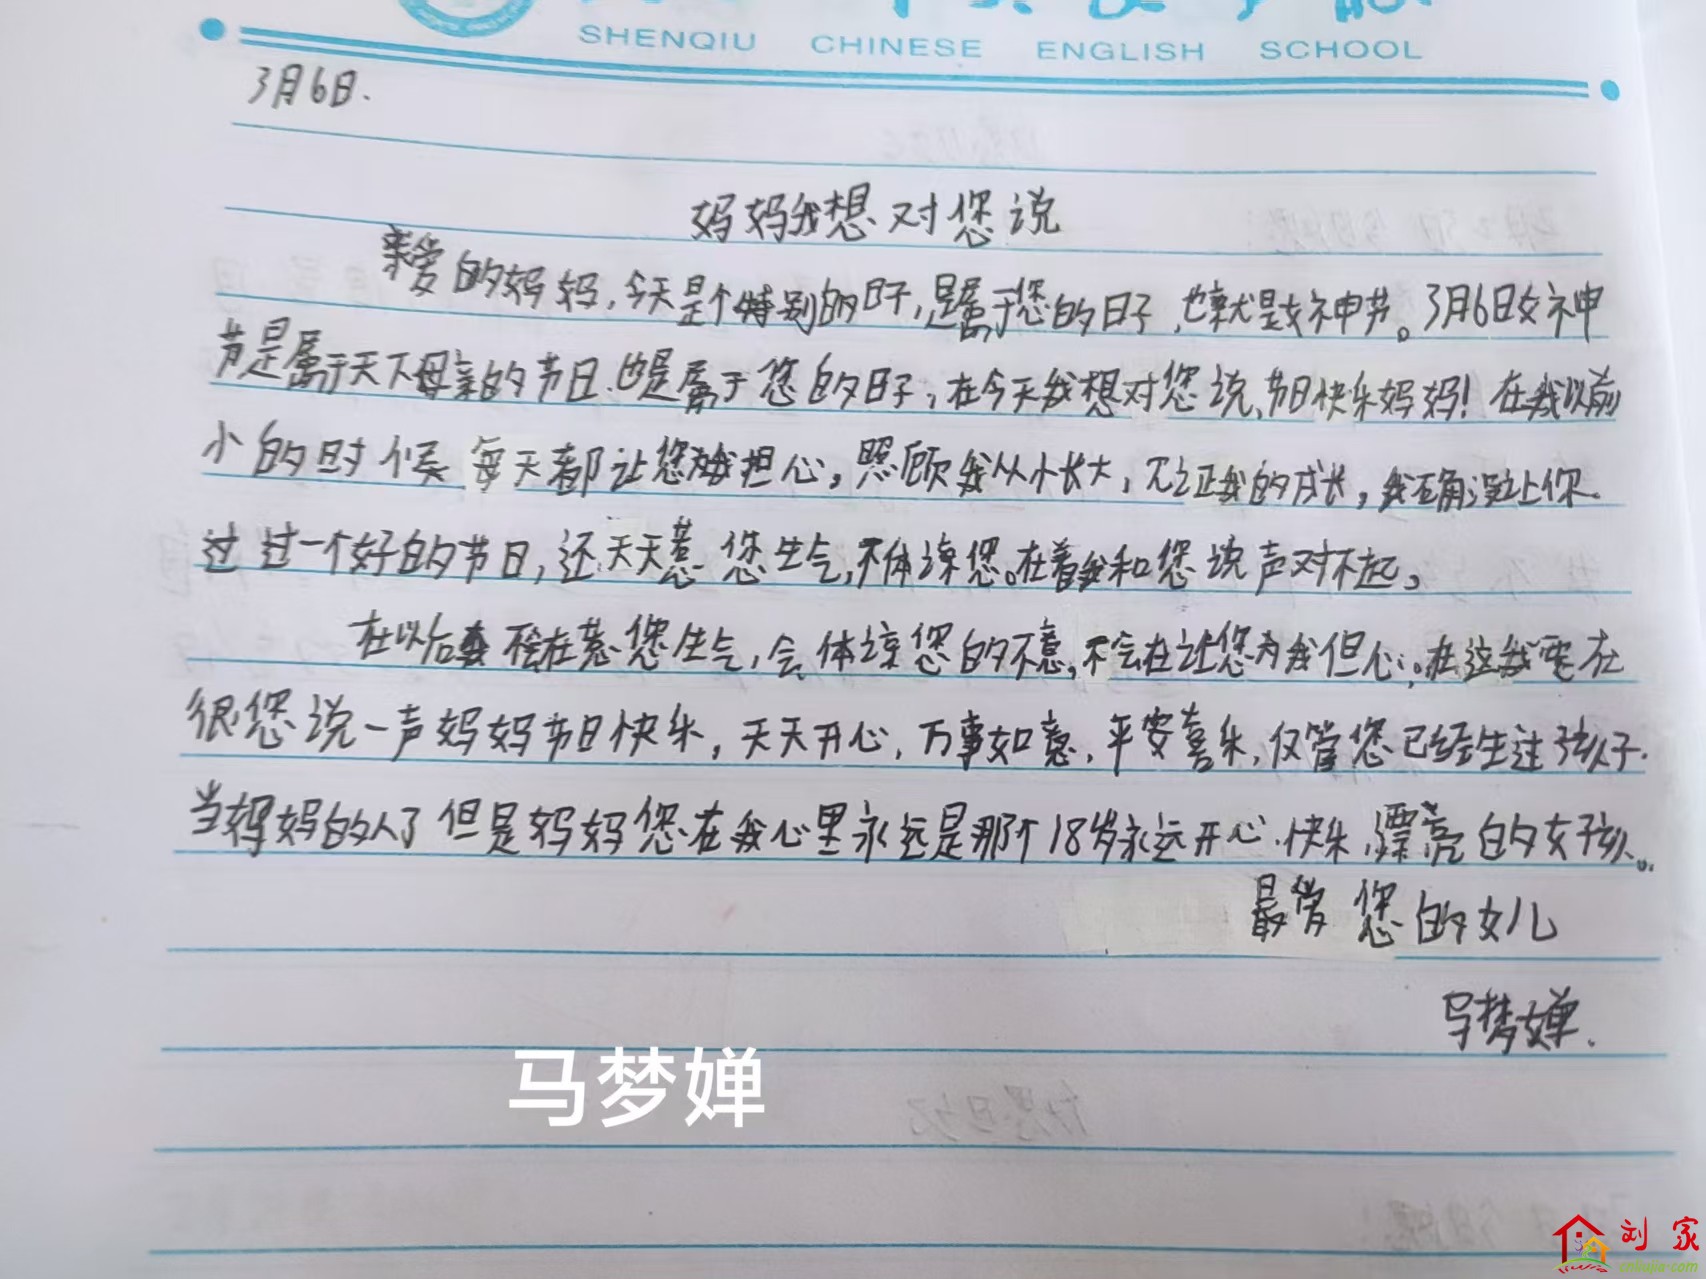 SHENQIU CHINESE ENGLISH SCHOOL
3月6日.
妈妈我想对您说
亲爱的妈妈,今天是个特别的日子,是属于您的日子,也就是女神节。3月6日女神
节是属于天下母亲的节日、也是属于您的日子,在今天我想对您说、节日快乐妈妈!在我以前
小的时候每天都让您为我担心,照顾我从小长大,见证我的成长,我不确没让你
过过一个好的节日,还天天惹您生气,不体谅您。在着我和您说声对不起。
在以后要不会在惹您生气,会体谅您的不意,不会在让您为我但心。在这我要在
很您说一声妈妈节日快乐,天天开心,万事如意,平安喜乐,仅管您已经生过孩子.
当妈妈的人了但是妈妈您在我心里永远是那个18岁永远开心.快乐、漂亮的女孩。
最爱您的女儿
马梦婵.
马梦婵
刘家
cnliujia.com